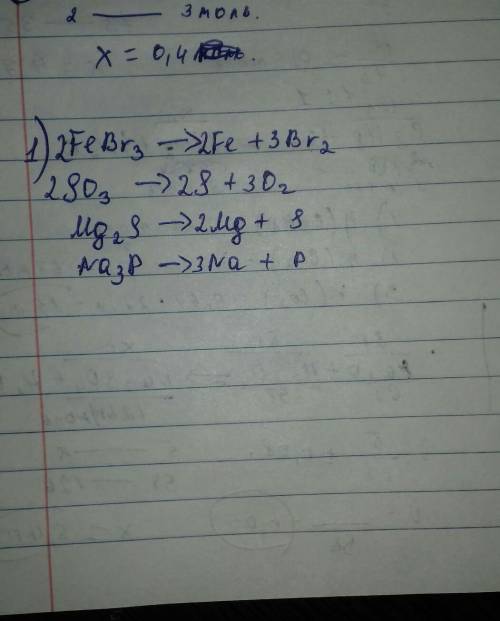 2 —— 3 моль.
x = 0,4
1) 2FeBr₃ → 2Fe + 3Br₂
2SO₃ → 2S + 3O₂
Mg₂S → 2Mg + S
Na₃P → 3Na + P